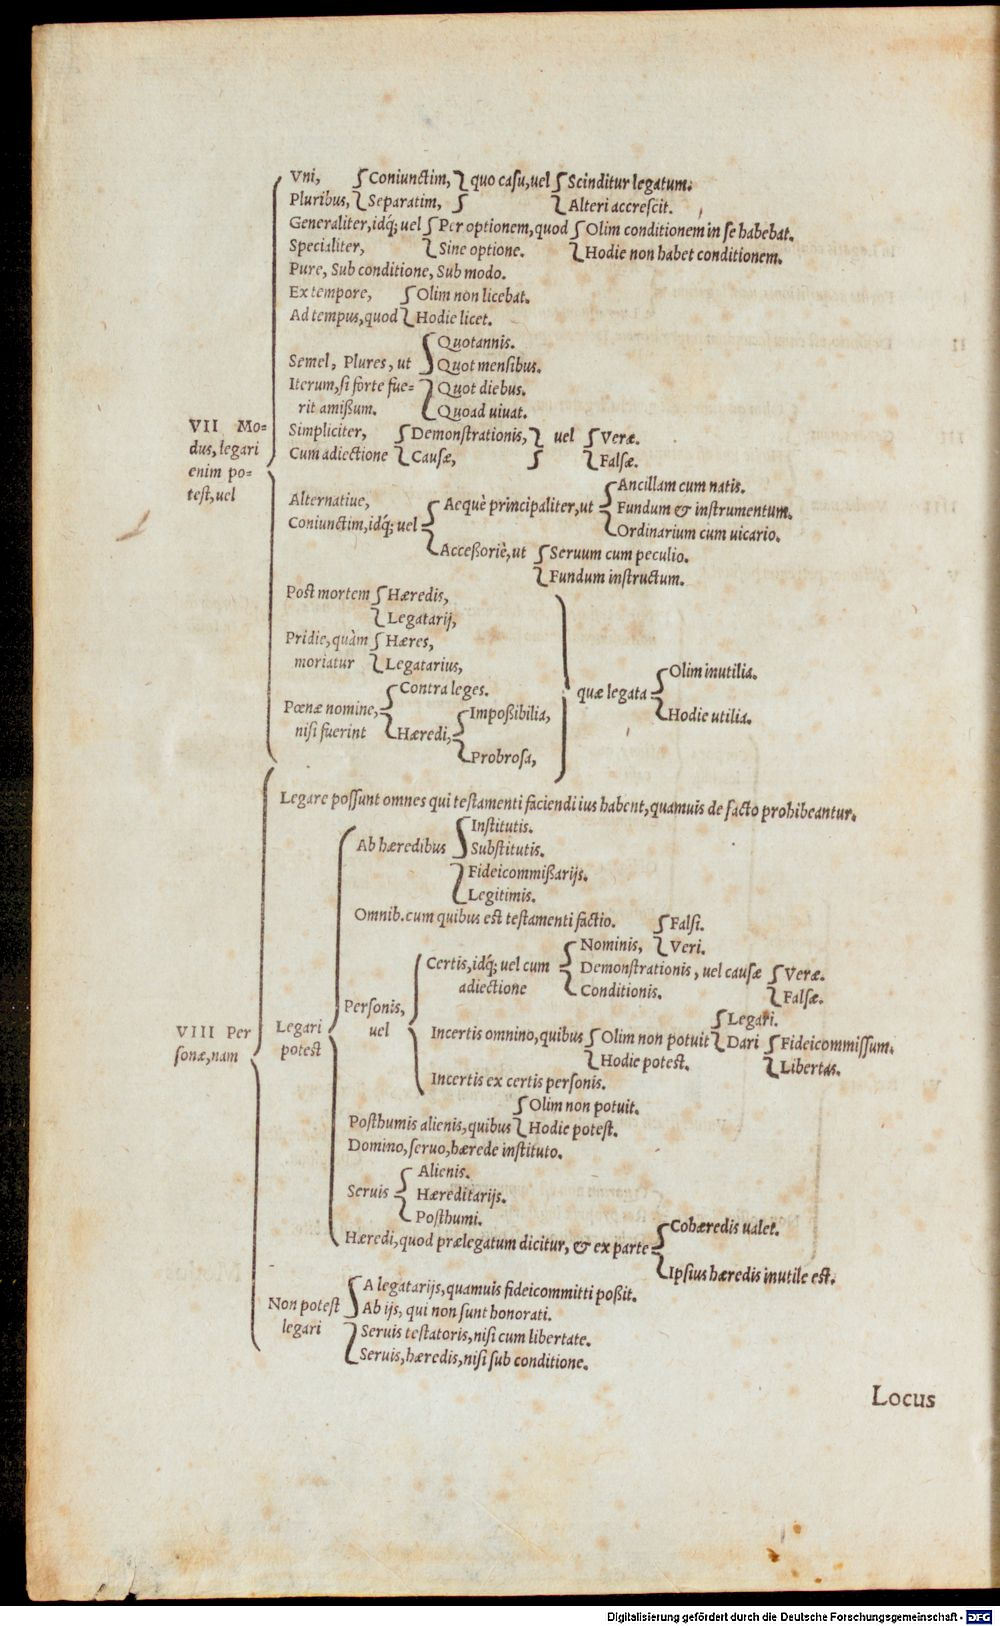 Vni, Coniunctim, quo casu, uel Scinditur legatum.
Pluribus, Separatim, Alteri accrescit.
Generaliter, idq́; uel Per optionem, quod Olim conditionem in se habebat.
Specialiter, Sine optione. Hodie non habet conditionem.
Pure, Sub conditione, Sub modo.
Ex tempore, Olim non licebat.
Ad tempus, quod Hodie licet.
Quotannis.
Semel, Plures, ut Quot mensibus.
Iterum, si forte fue= Quot diebus.
rit amißum. Quoad uiuat.
VII Mo=
dus, legari
enim po=
test, uel
Simpliciter, Demonstrationis, uel Veræ.
Cum adiectione Causæ, Falsæ.
Ancillam cum natis.
Alternatiue, Aequè principaliter, ut Fundum & instrumentum.
Coniunctim, idq́; uel Ordinarium cum uicario.
Acceßoriè, ut Seruum cum peculio.
Fundum instructum.
Post mortem Hæredis,
Legatarij,
Pridie, quàm Hæres,
moriatur Legatarius,
Contra leges.
Pœnæ nomine, Impoßibilia,
nisi fuerint Hæredi,
Probrosa,
quæ legata Olim inutilia.
Hodie utilia.
Legare possunt omnes qui testamenti faciendi ius habent, quamuis de facto prohibeantur.
Ab hæredibus Institutis.
Substitutis.
Fideicommißarijs.
Legitimis.
Omnib. cum quibus est testamenti factio. Falsi.
Nominis, Veri.
Certis, idq́; uel cum Demonstrationis, uel causæ Veræ.
adiectione Conditionis. Falsæ.
Personis,
uel
VIII Per
sonæ, nam
Legari
potest
Legari.
Incertis omnino, quibus Olim non potuit Dari Fideicommissum.
Hodie potest. Libertas.
Incertis ex certis personis.
Olim non potuit.
Posthumis alienis, quibus Hodie potest.
Domino, seruo, hærede instituto.
Alienis.
Seruis Hæreditarijs.
Posthumi.
Hæredi, quod prælegatum dicitur, & ex parte Cohæredis ualet.
Ipsius hæredis inutile est.
Non potest
legari
A legatarijs, quamuis fideicommitti poßit.
Ab ijs, qui non sunt honorati.
Seruis testatoris, nisi cum libertate.
Seruis, hæredis, nisi sub conditione.
Locus
Digitalisierung gefördert durch die Deutsche Forschungsgemeinschaft - DFG